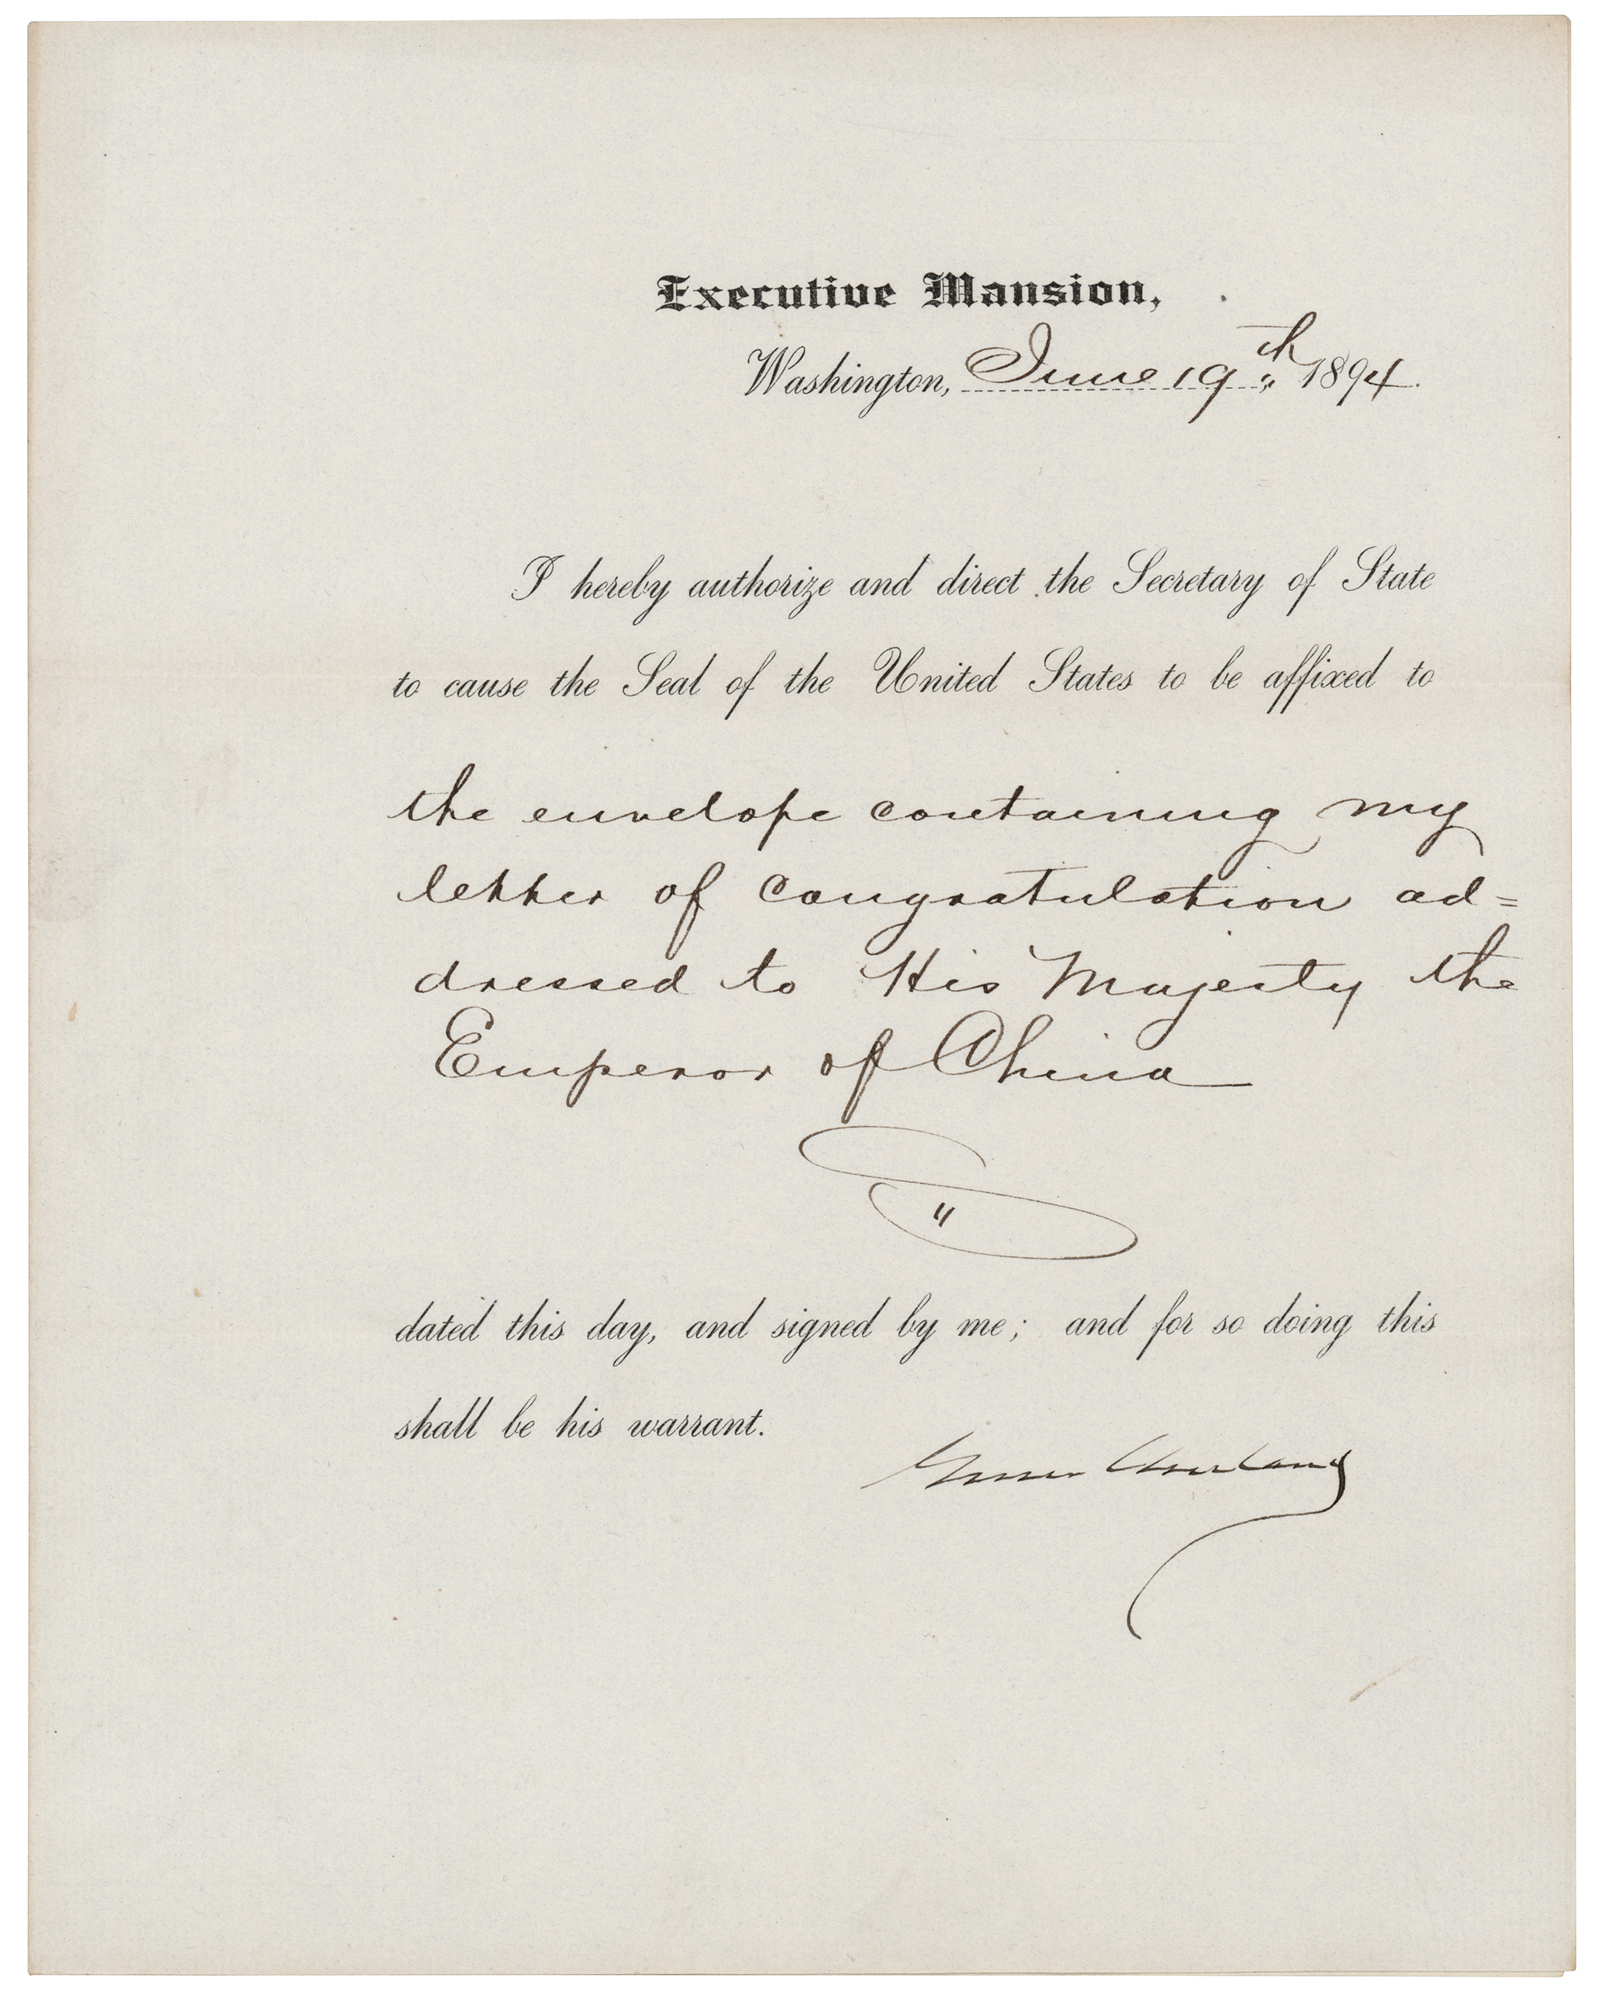 Executive Mansion,
Washington, June 19th 1894.
I hereby authorize and direct the Secretary of State
to cause the Seal of the United States to be affixed to
the envelope containing my
letter of congratulation ad=
dressed to His Majesty the
Emperor of China
"
dated this day, and signed by me; and for so doing this
shall be his warrant.
Grover Cleveland